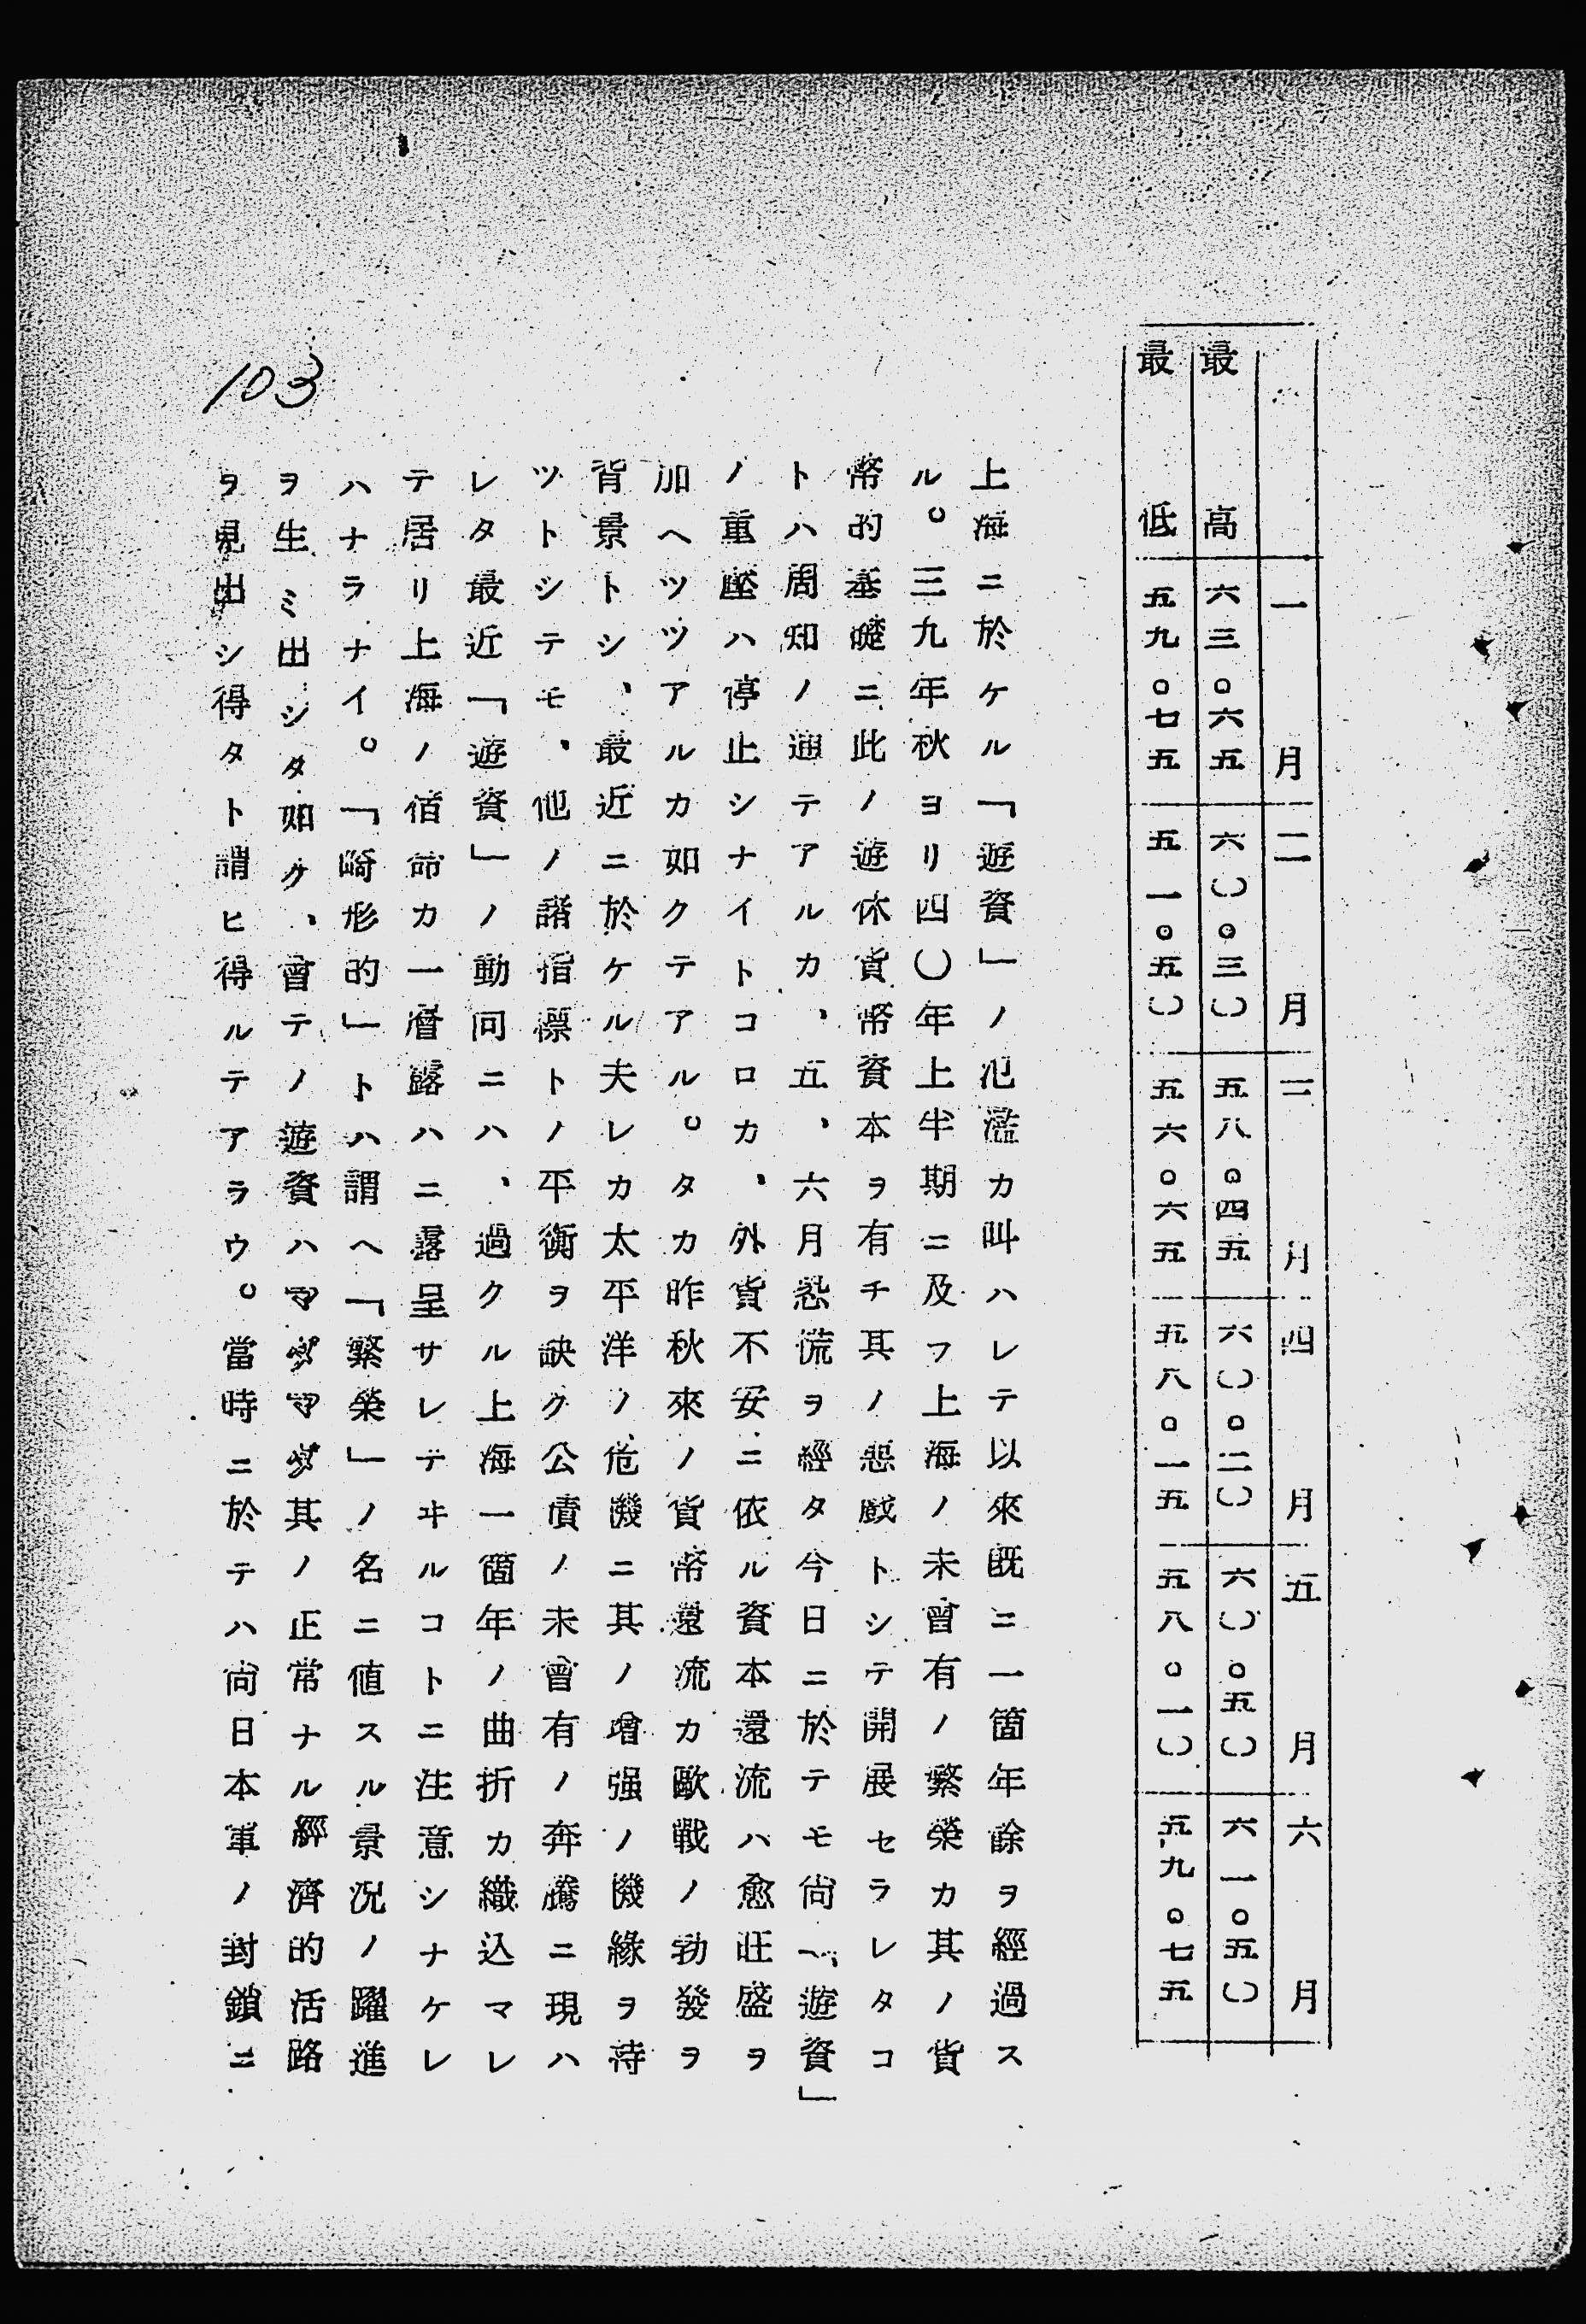 一月 二月 三月 四月 五月 六月
最高 六三。六五 六〇。三〇 五八。四五 六〇。二〇 六〇。五〇 六一。五〇
最低 五九。七五 五一。五〇 五六。六五 五八。一五 五八。一〇 五九。七五
上海ニ於ケル「遊資」ノ氾濫カ叫ハレテ以來既ニ一箇年餘ヲ經過ス
ル。三九年秋ヨリ四〇年上半期ニ及フ上海ノ未曾有ノ繁榮カ其ノ貨
幣的基礎ニ此ノ遊休貨幣資本ヲ有チ其ノ惡戲トシテ開展セラレタコ
トハ周知ノ通テアルカ、五、六月恐慌ヲ經タ今日ニ於テモ尙「遊資」
ノ重壓ハ停止シナイトコロカ、外貨不安ニ依ル資本還流ハ愈旺盛ヲ
加ヘツツアルカ如クテアル。タカ昨秋來ノ貨幣還流カ歐戰ノ勃發ヲ
背景トシ、最近ニ於ケル夫レカ太平洋ノ危機ニ其ノ增强ノ機緣ヲ待
ツトシテモ、他ノ諸指標トノ平衡ヲ缺ク公債ノ未曾有ノ奔騰ニ現ハ
レタ最近「遊資」ノ動向ニハ、過クル上海一箇年ノ曲折カ織込マレ
テ居リ上海ノ宿命カ一層露ハニ露呈サレテヰルコトニ注意シナケレ
ハナラナイ。「畸形的」トハ謂ヘ「繁榮」ノ名ニ値スル景況ノ躍進
ヲ生ミ出シタ如ク、曾テノ遊資ハマダマダ其ノ正常ナル經濟的活路
ヲ見出シ得タト謂ヒ得ルテアラウ。當時ニ於テハ尙日本軍ノ封鎖ニ
103